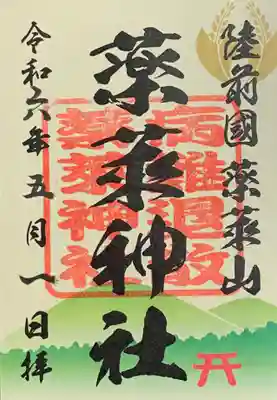 陸前國 薬萊山
薬萊神社
令和六年五月一日拝
病難退散
薬萊神社